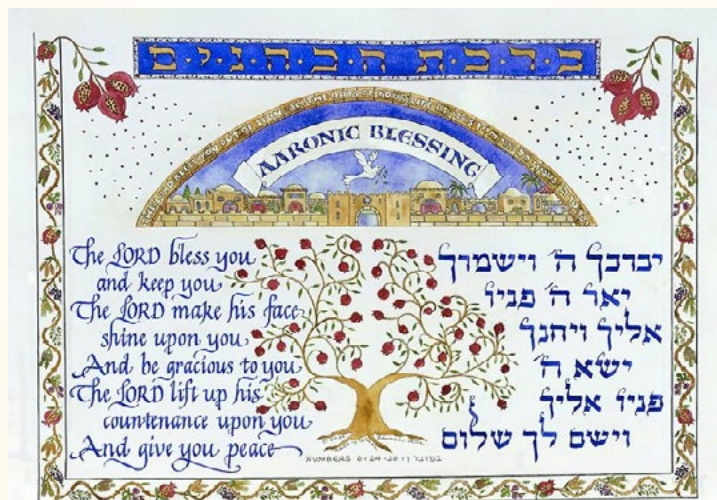 ב·ר·כ·ת ה·כ·ה·נ·י·ם
AARONIC BLESSING
The LORD bless you
and keep you
The LORD make his face
shine upon you
And be gracious to you
The LORD lift up his
countenance upon you
And give you peace
יברכך ה' וישמרך
יאר ה' פניו
אליך ויחנך
ישא ה'
פניו אליך
וישם לך שלום
NUMBERS 6:24-26 במדבר ו